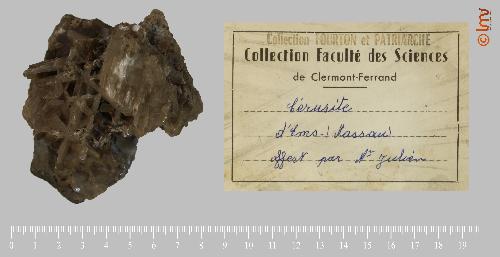 © lmv
Collection TOURTON et PATRIARCHE
Collection Faculté des Sciences
de Clermont-Ferrand
Cérusite
d'Ems (Nassau)
offert par Mr Julien
0 1 2 3 4 5 6 7 8 9 10 11 12 13 14 15 16 17 18 19